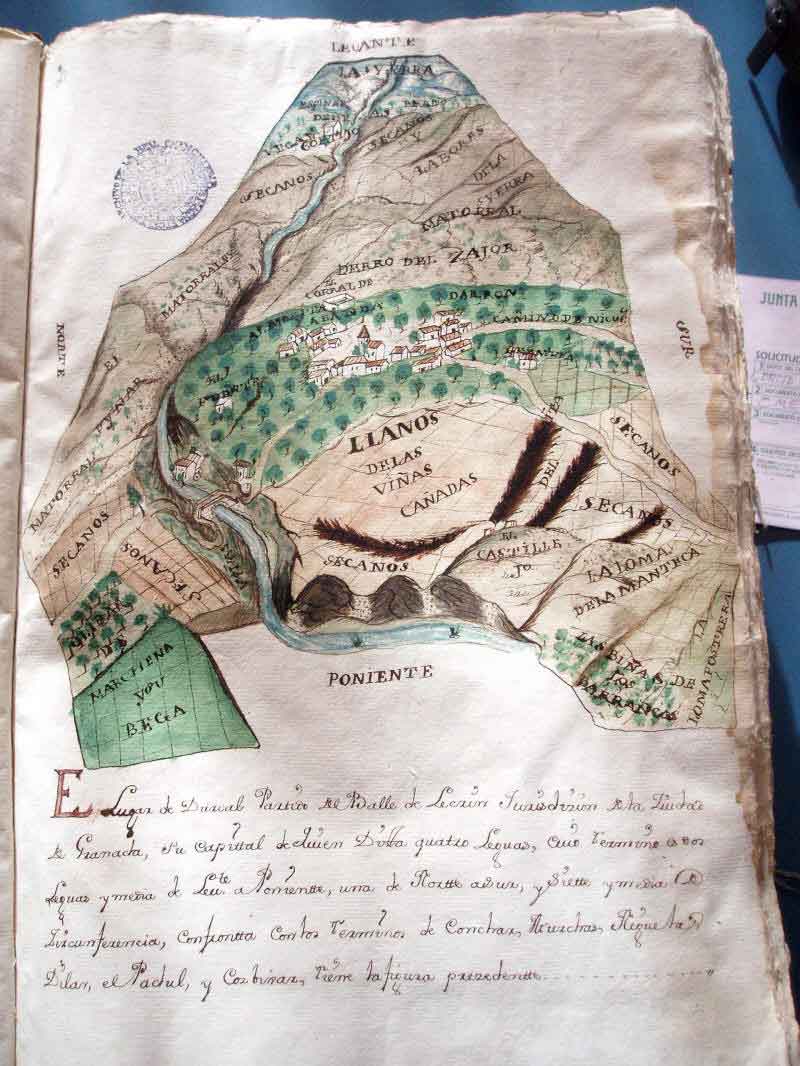 LECANTE
LA SYERRA
SECANOS Y
LABORES
DE LA
SYERRA
SECANOS
MATORRAL
MATORRALES
ZERRO DEL ZAJOR
CORRAL DE
DARRON
CAMINO DE
NORTE
SUR
EL
MATORRAL
LLANOS
DE LAS
VIÑAS
CAÑADAS
DEL
SECANOS
SECANOS
SECANOS
SECANOS
SECANOS
EL
CASTILLE
JO
LA LOMA
DE LA MANTECA
LAS BIÑAS DE
LOS
BARRANCOS
LA
LOMA POSTRERA
MARCHENA
you
BEGA
PONIENTE
El Lugar de Durcal Partido del Balle de Lecrin Jurisdizion de la Ziudad
de Granada, su Capittal de quien Distta quatro Leguas, Cuio Termino es dos
Leguas y media de Levte. a Ponientte, una de Nortte a Sur, y Siette y media de
Zircunferencia, Confrontta con los Terminos de Conchar, Murchas, Niguelas,
Dilar, el Padul, y Cosbixar, tiene la figura prezedentte
JUNTA
SOLICITUD